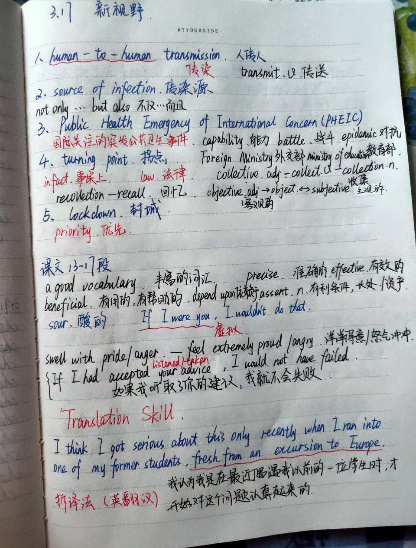 3.17 新视野
1. human-to-human transmission. 人传人
传染 transmit. v. 传送
2. source of infection. 传染源
not only … but also 不仅…而且
3. Public Health Emergency of International Concern (PHEIC)
国际关注的突发公共卫生事件. capability 能力 battle. 战斗 epidemic 对抗
4. turning point. 拐点, Foreign Ministry 外交部 ministry of education 教育部
infact. 事实上 law. 法律 collective. adj - collect v. - collection. n.
收集
recollection - recall. 回忆 objective. adj → object ↔ subjective
客观的 主观的
5. lockdown. 封城
priority. 优先
课文13-17段
a good vocabulary 丰富的词汇 precise. 准确的 effective. 有效的
beneficial. 有用的, 有帮助的 depend upon 依赖于 assent. n.
sour. 酸的 If I were you, I wouldn't do that.
虚拟
swell with pride/anger. feel extremely proud/angry. 洋洋得意/怒气冲冲
listened/taken
If I had accepted your advice, I would not have failed.
如果我听取了你的建议, 我就不会失败.
Translation Skill.
I think I got serious about this only recently when I ran into
one of my former students, fresh from an excursion to Europe.
拆译法 (英翻汉) 我认为我是在最近遇到我以前的一位学生时, 才
开始对这个问题认真起来的.